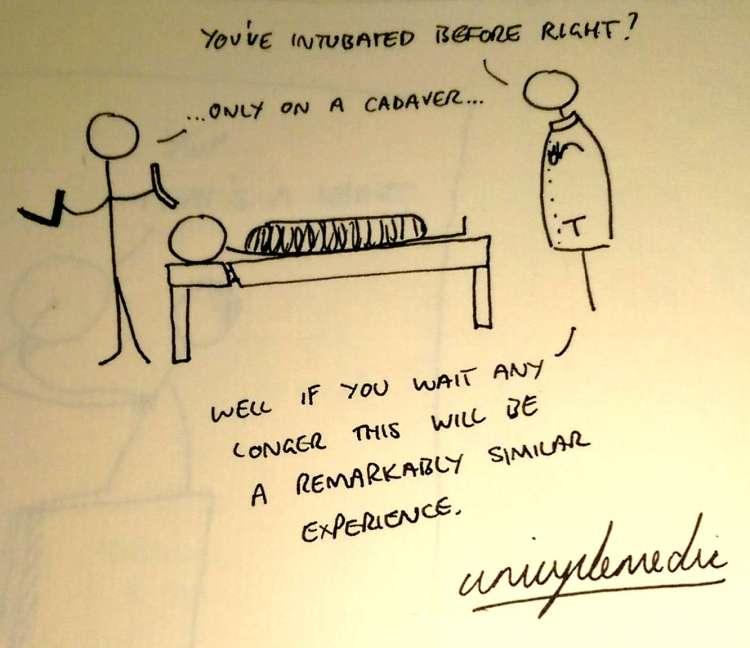 YOU'VE INTUBATED BEFORE RIGHT?
...ONLY ON A CADAVER...
WELL IF YOU WAIT ANY
LONGER THIS WILL BE
A REMARKABLY SIMILAR
EXPERIENCE.
unicyclemedic